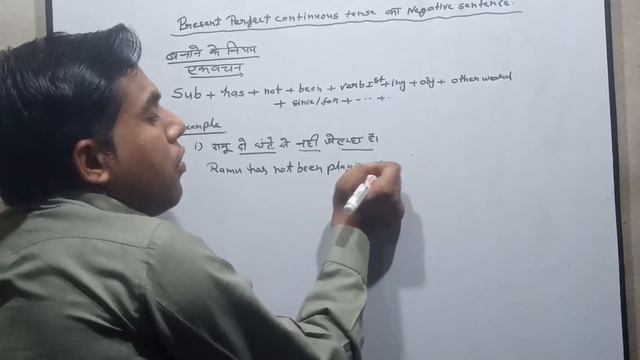 Present Perfect continuous tense का Negative sentence.
बनाने के नियम
एकवचन
Sub + has + not + been + verb Ist + ing + obj + other word
+ since/for + --- + .
Example
1) रामू दो घंटे से नहीं खेल रहा है।
Ramu has not been playing